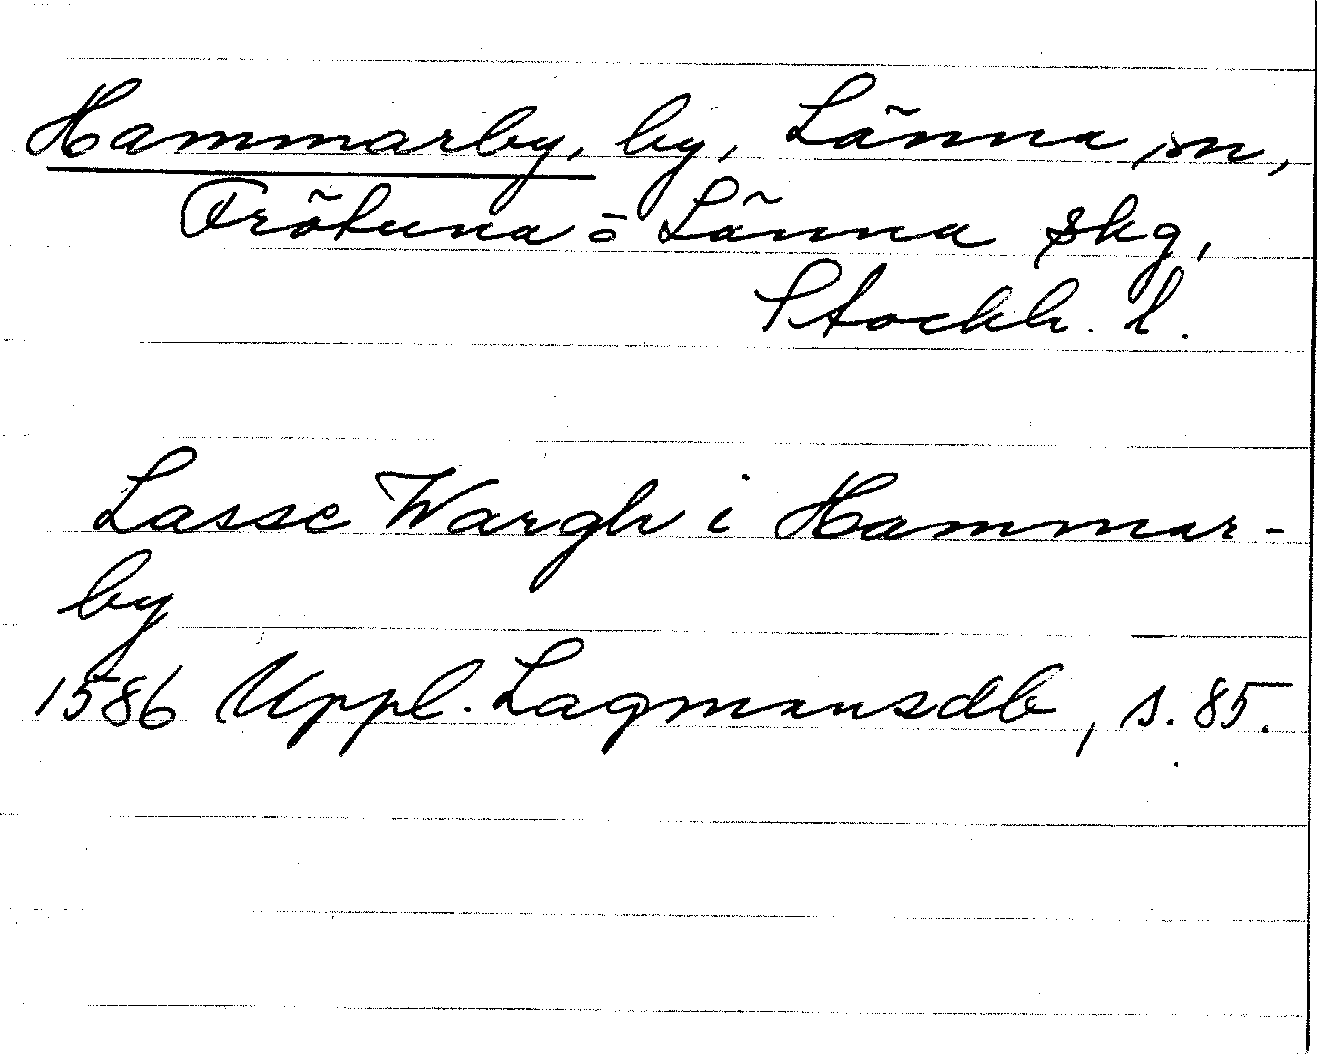 Hammarby, by, Länna sn,
Frötuna o Länna skg,
Stockh. l.
Lasse Wargh i Hammar-
by
1586 Uppl. Lagmansdb, s. 85.